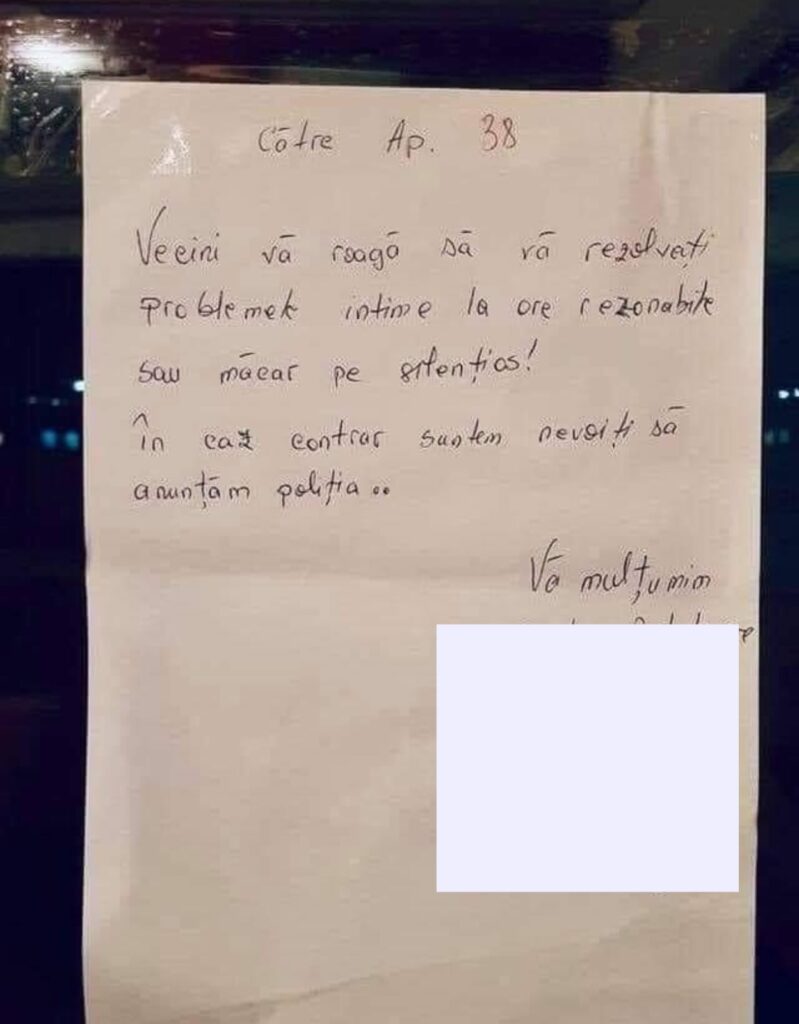 Către Ap. 38
Vecini vă roagă să vă rezolvați
problemele intime la ore rezonabile
sau măcar pe silențios!
În caz contrar suntem nevoiți să
anunțăm poliția..
Vă mulțumim